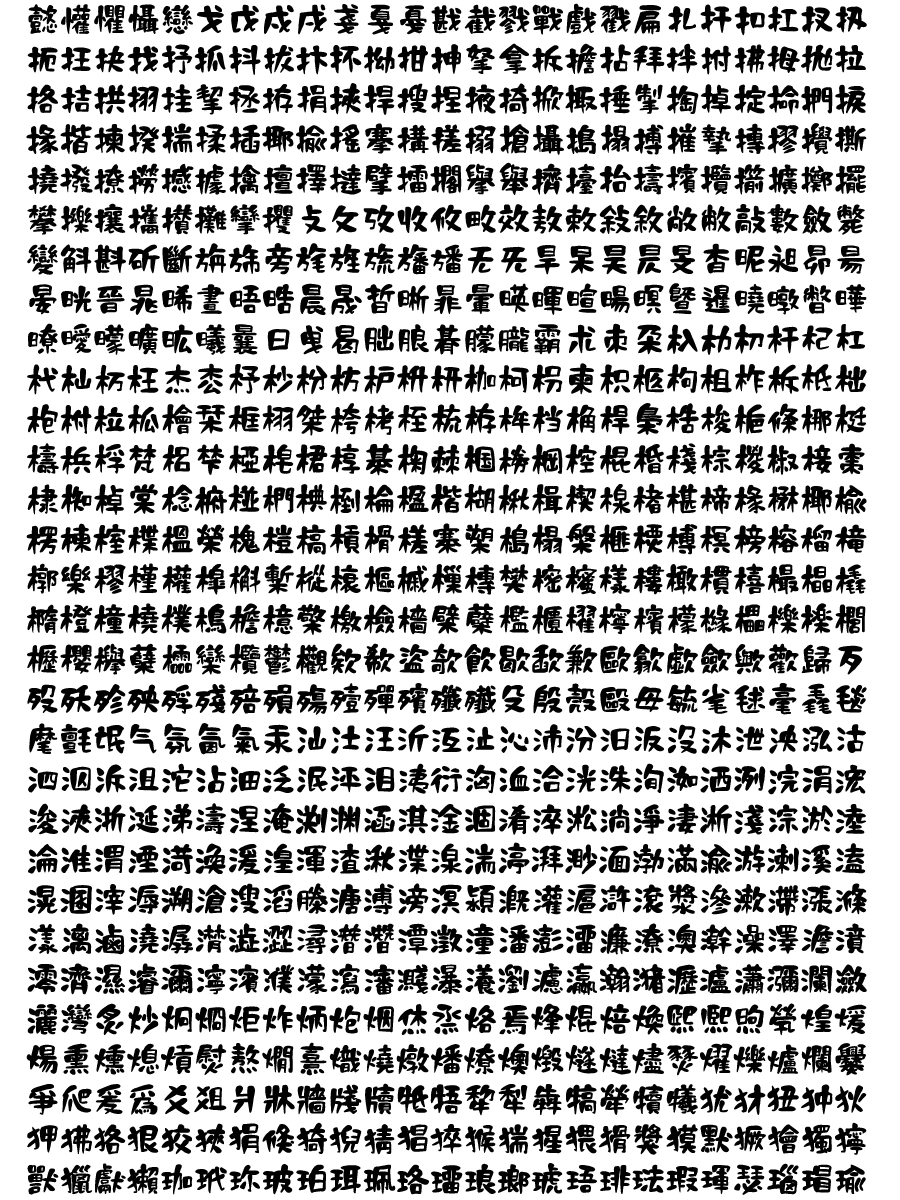 懿懽懼懾戀戈戊戍戌戔戛戞戡截戮戰戲戳扁扎扞扣扛扠扨
扼抂抉找抒抓抖拔抃抔拗拑抻拏拿拆擔拈拜拌拊拂拇抛拉
挌拮拱挧挂挈拯拵捐挾捍搜捏掖掎掀掫捶掣掏掉掟掵捫捩
掾揩揀揆揣揉插揶揄搖搴搆搓搦搶攝搗搨搏摧摯摶摎攪撕
撓撥撩撈撼據擒擅擇撻擘擂擱擧舉擠擡抬擣擯攬擶擴擲擺
攀擽攘攜攅攤攣攫攴攵攷收攸畋效敖敕敍敘敞敝敲數斂斃
變斛斟斫斷旃旆旁旄旌旒旛旙无旡旱杲昊昃旻杳昵昶昴昜
晏晄晉晁晞晝晤晧晨晟晢晰暃暈暎暉暄暘暝曁暹曉暾暼曄
暸曖曚曠昿曦曩曰曳曷朏朖朞朦朧霸朮朿朶杁朸朷杆杞杠
杙杣杤枉杰枩杼杪枌枋枦枡枅枷柯枴柬枳柩枸柤柞柝柢柮
枹柎柆柧檜栞框栩桀桍栲桎梳栫桙档桷桿梟梏梭梔條梛梃
檮梹桴梵梠梺椏梍桾椁棊椈棘椢椦棡椌棍棔棧棕椶椒接棗
棣椥棹棠棯椨椪們椣椡棆楹楷楜楸楫楔楾楮椹楴椽楙椰楡
楞楝榁楪榲榮槐榿槁槓榾槎寨槊槝榻槃榧樮榑榠榜榕榴槞
槨樂樛槿權槹槲槧樅榱樞槭樔槫樊樒櫁樣樓橄樌橲樶橸橇
橢橙橦橈樸樢檐檍檠檄檢檣檗蘗檻櫃櫂檸檳檬櫞櫑櫟檪櫚
櫪櫻欅蘖櫺欒欖鬱欟欸欷盜欹飮歇歃歉歐歙歔歛歟歡歸歹
歿殀殄殃殍殘殕殞殤殪殫殯殲殱殳殷殼毆毋毓毟毬毫毳毯
麾氈氓气氛氤氣汞汕汢汪沂沍沚沁沛汾汨汳沒沐泄泱泓沽
泗泅泝沮沱沾沺泛泯泙泪洟衍洶洫洽洸洙洵洳洒洌浣涓浤
浚浹浙涎涕濤涅淹渕淵涵淇淦涸淆淬淞淌淨淒淅淺淙淤淕
淪淮渭湮渮渙湲湟渾渣湫渫湶湍渟湃渺湎渤滿渝游溂溪溘
滉溷滓溽溯滄溲滔滕溏溥滂溟潁漑灌滬滸滾漿滲漱滯漲滌
漾漓滷澆潺潸澁澀潯潛濳潭澂潼潘澎澑濂潦澳澣澡澤澹濆
澪濟濕濬濔濘濱濮濛瀉瀋濺瀑瀁瀏濾瀛瀚潴瀝瀘瀟瀰瀾瀲
灑灣炙炒炯烱炬炸炳炮烟烋烝烙焉烽焜焙煥煕熈煦煢煌煖
煬熏燻熄熕熨熬燗熹熾燒燉燔燎燠燬燧燵燼燹燿爍爐爛爨
爭爬爰爲爻爼爿牀牆牋牘牴牾犂犁犇犒犖犢犧犹犲狃狆狄
狎狒狢狠狡狹狷倏猗猊猜猖猝猴猯猩猥猾獎獏默獗獪獨獰
獸獵獻獺珈玳珎玻珀珥珮珞璢琅瑯琥珸琲琺瑕琿瑟瑙瑁瑜